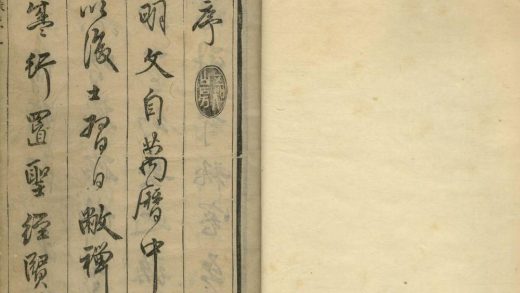 序
明文自萬曆中
以後士習日敝禅
行置聖經賢